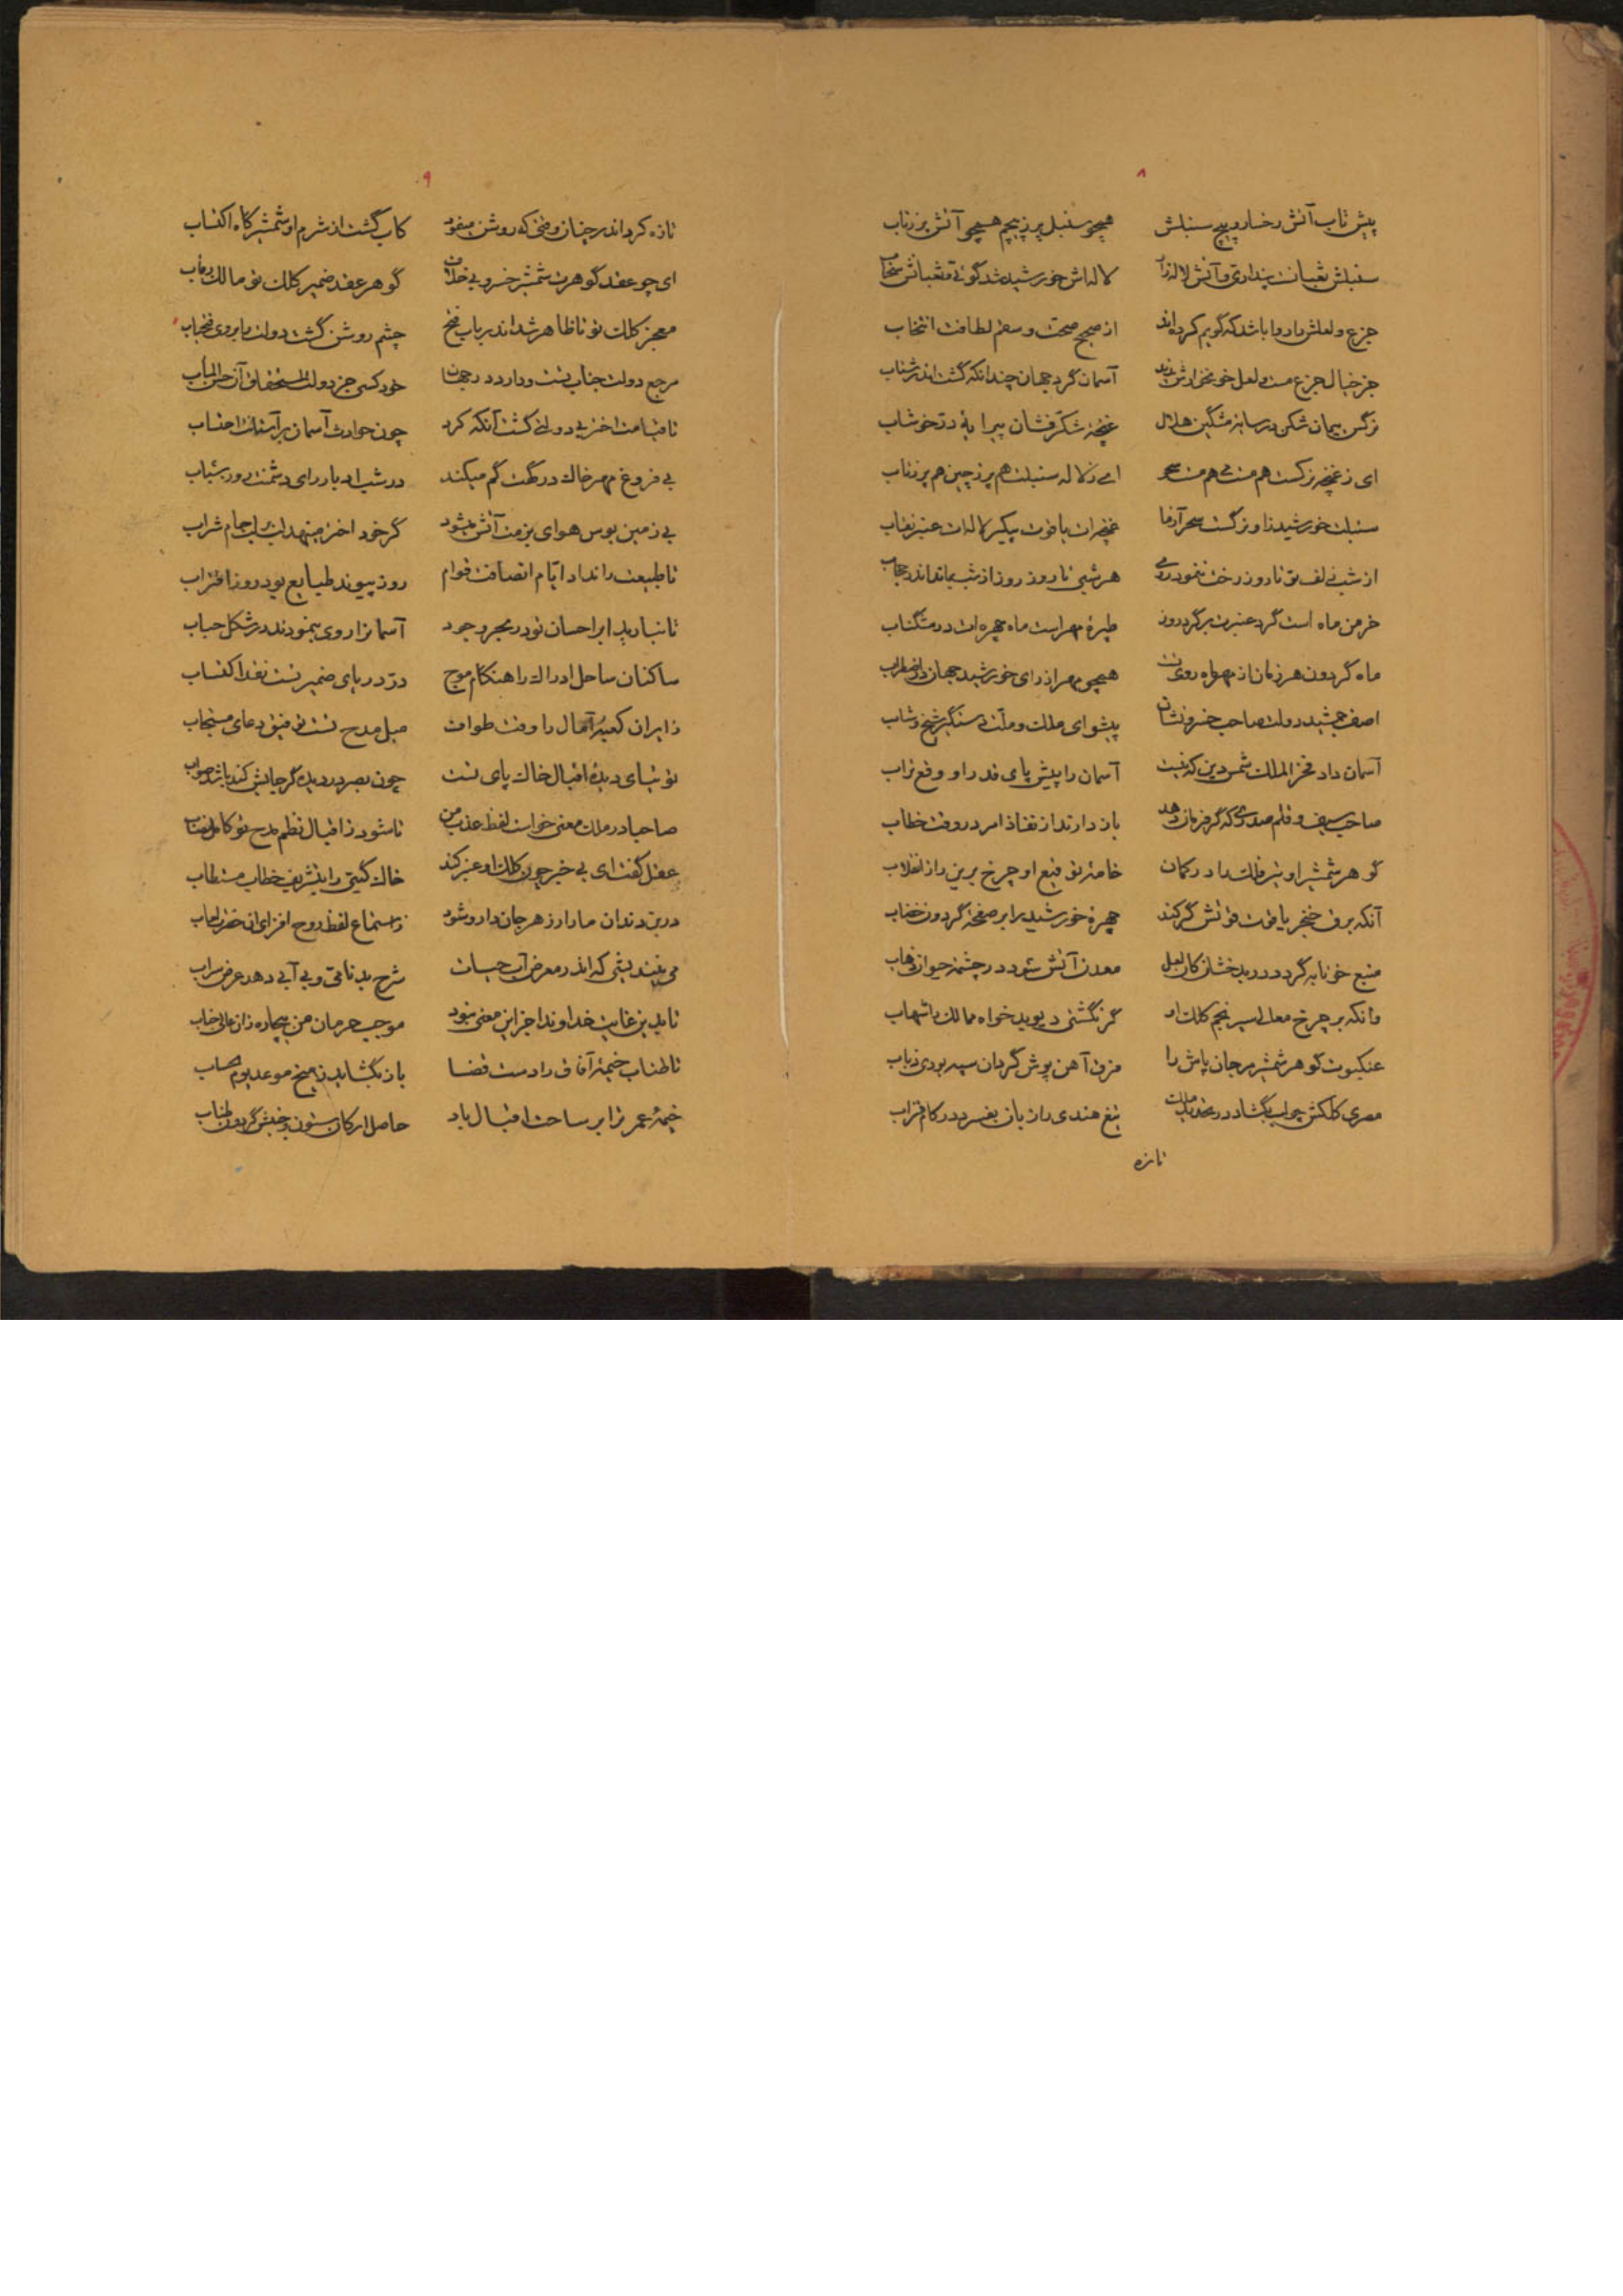 ۸
پیش تاب آتش رخسار و پیچ سنبلش همچو سنبل پر ز پیچم همچو آتش پر ز تاب
سنبلش ثعبانست پنداری و آتش لاله زار لاله اش خورشید شد گوئی و ثعبانش سحاب
جزع و لعلش را روا باشد که گویم کرده اند از صحیح صحت و سقم لطافت انتخاب
جز خیال جزع مست و لعل خونخوارش ندید آسمان گرد جهان چندانکه گشت اندر شتاب
نرگس پیمان شکن در سایهٔ مشگین هلال غنچهٔ شکر فشان پیرایهٔ در خوشاب
ای ز غنچه نرگست هم مست و هم مست سحر ای ز لاله سنبلت هم پر ز چین هم پر ز تاب
سنبلت خورشید زا و نرگست سحر آزما غنچه ات یاقوت پیکر لاله ات عنبر نقاب
از شب زلف تو تا روز رخت ننمود روی هر شبی تا روز روز از شب بماند اندر حجاب
خرمن ماه است گرد عنبرت بر گرد روز طیرهٔ مهر است ماه چهره ات در مشگناب
ماه گردون هر زمان از مهر ماه روی تست همچو مهر از رای خورشید جهان در اضطراب
آصف جمشید دولت صاحب خسرو نشان پیشوای ملک و ملت دستگیر شیخ و شاب
آسمان داد فخر الملک شمس دین که نیست آسمان را پیش پای قدر او وقع تراب
صاحب سیف و قلم صدری که گر فرمان دهد باز دارند از نفاذ امر در وقت خطاب
گوهر شمشیر او تیر فلک را در کمان خامهٔ توقیع او چرخ برین را ز انقلاب
آنکه برق خنجر یاقوت فوتش گر کند چهرهٔ خورشید را بر صفحهٔ گردون خضاب
منبع خونابه گردد در بدخشان کان لعل معدن آتش شود در چشمهٔ حیوان ذهاب
وانکه بر چرخ معالی سیر نجم کلک او گر نگشتی دیو بدخواه ممالک را شهاب
عنکبوت گوهر شمشیر مرجان پاش را فرق آهن پوش گردان سپر بودی ذباب
مصری کلکش چو لب بگشاد در ملک تیغ هندی را زبان بفسرد در کام قراب
تازه
۹
تازه کرد اندر چنان وقتی که روشن کاب گشت از شرم او شمشیر گاه اکتساب
ای چو عقد گوهرت شمشیر خسرو بی خلاف گوهر عقد ضمیر کلک تو مالک رقاب
معجز کلک تو تا ظاهر شد اندر باب فتح چشم روشن گشت دولت را بروی فتح باب
مرجع دولت جناب تست و دارد در جهان خود کسی جز دولت استحقاق آن حسن المآب
تا قیامت اختر بی دولتی گشت آنکه کرد چون حوادث آسمان بر آستانت احتساب
بی فروغ مهر خاک درگهت گم میکند در شب ادبار رای دشمنت دور شباب
بی زمین بوس هوای بزمت آتش میشود گر خود اختر مینهد لب بر لب جام شراب
تا طبیعت را نداد ایام انصافت قوام روز پیوند طبایع بود روز اقتراب
تا نبارید ابر احسان تو در بحر وجود آسمانرا روی ننمودند در شکل حباب
ساکنان ساحل ادراک را هنگام موج در دریای ضمیر تست نقد اکتساب
زایران کعبهٔ آمال را وقت طواف میل مدح تست توفیق دعای مستجاب
توتیای دیدهٔ اقبال خاک پای تست چون بصر در دیده گر جایش کند باشد صواب
صاحبا در ملک معنی خواست لفظ عذب من تا شود ز اقبال نظم مدح تو کامل نصاب
عقل گفت ای بی خبر چون کلک او عنبر کند خاک گیتی را بتشریف خطاب مستطاب
درین دندان مار ار زهر جان دارو شود ز استماع لفظ روح افزای
می پسندیش که اندر معرض آب حیات شرح بدنامی و بی آبی دهد عرض سراب
تا بدین غایت خداوندا جز این معنی نبود موجب حرمان من بیچاره زان عالی جناب
تا طناب خیمهٔ آفاق را دست قضا باز نگشاید ز میخ موعد یوم الحساب
خیمهٔ عمر ترا بر ساحت اقبال باد حاصل ارکان ستون و جنبش گردون طناب